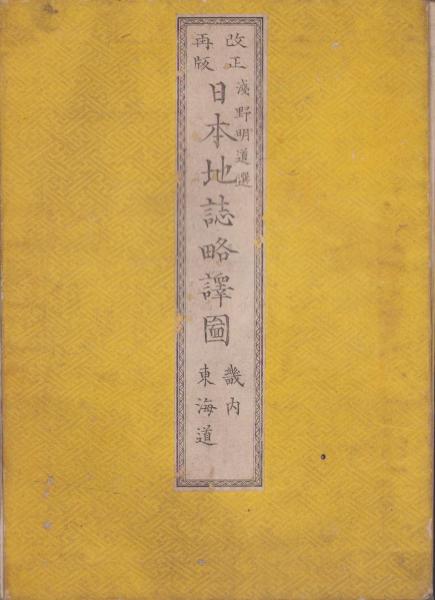 改正
再版
淺野明道撰
日本地誌略譯圖
畿内
東海道